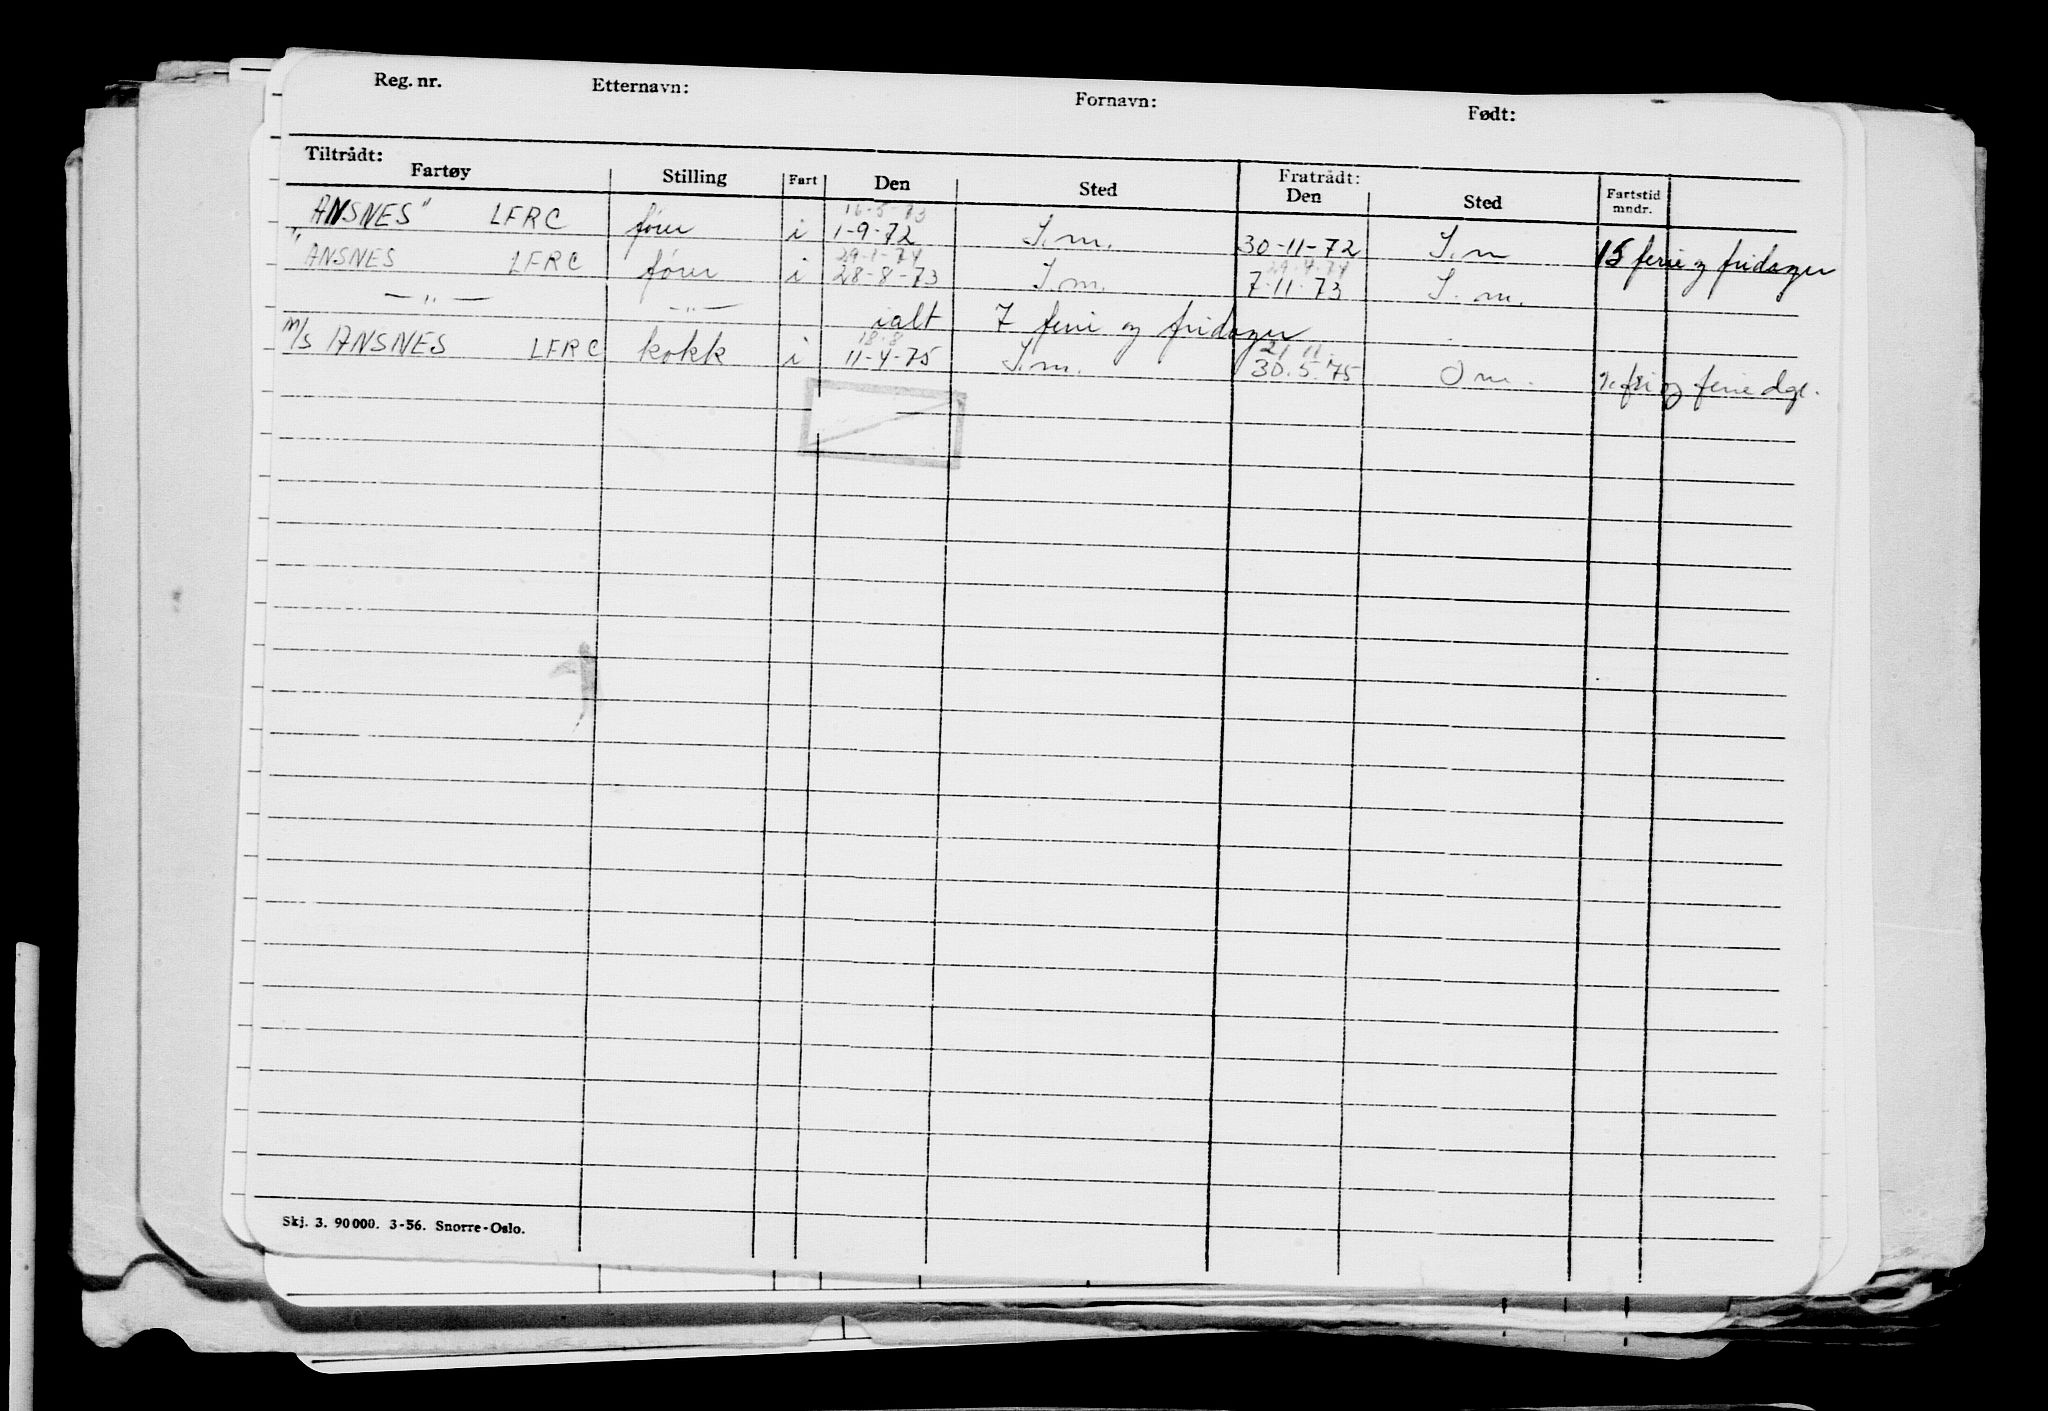 Reg. nr. Etternavn: Fornavn: Født:
Tiltrådt: Fratrådt:
Fartøy Stilling Fart Den Sted Den Sted Fartstid mndr.
16-5-73
"ANSNES" LFRC fører i 1-9-72 S.m. 30-11-72 S.m 15 ferie og fridager
29-1-74 29-4-74
"ANSNES LFRC fører i 28-8-73 S.m. 7-11-73 S.m.
— " — — " — ialt 7 ferie og fridager
18-8 21 11
M/S ANSNES LFRC kokk i 11-4-75 S.m. 30.5.75 fri og ferie dgr.
Skj. 3. 90000. 3-56. Snorre-Oslo.